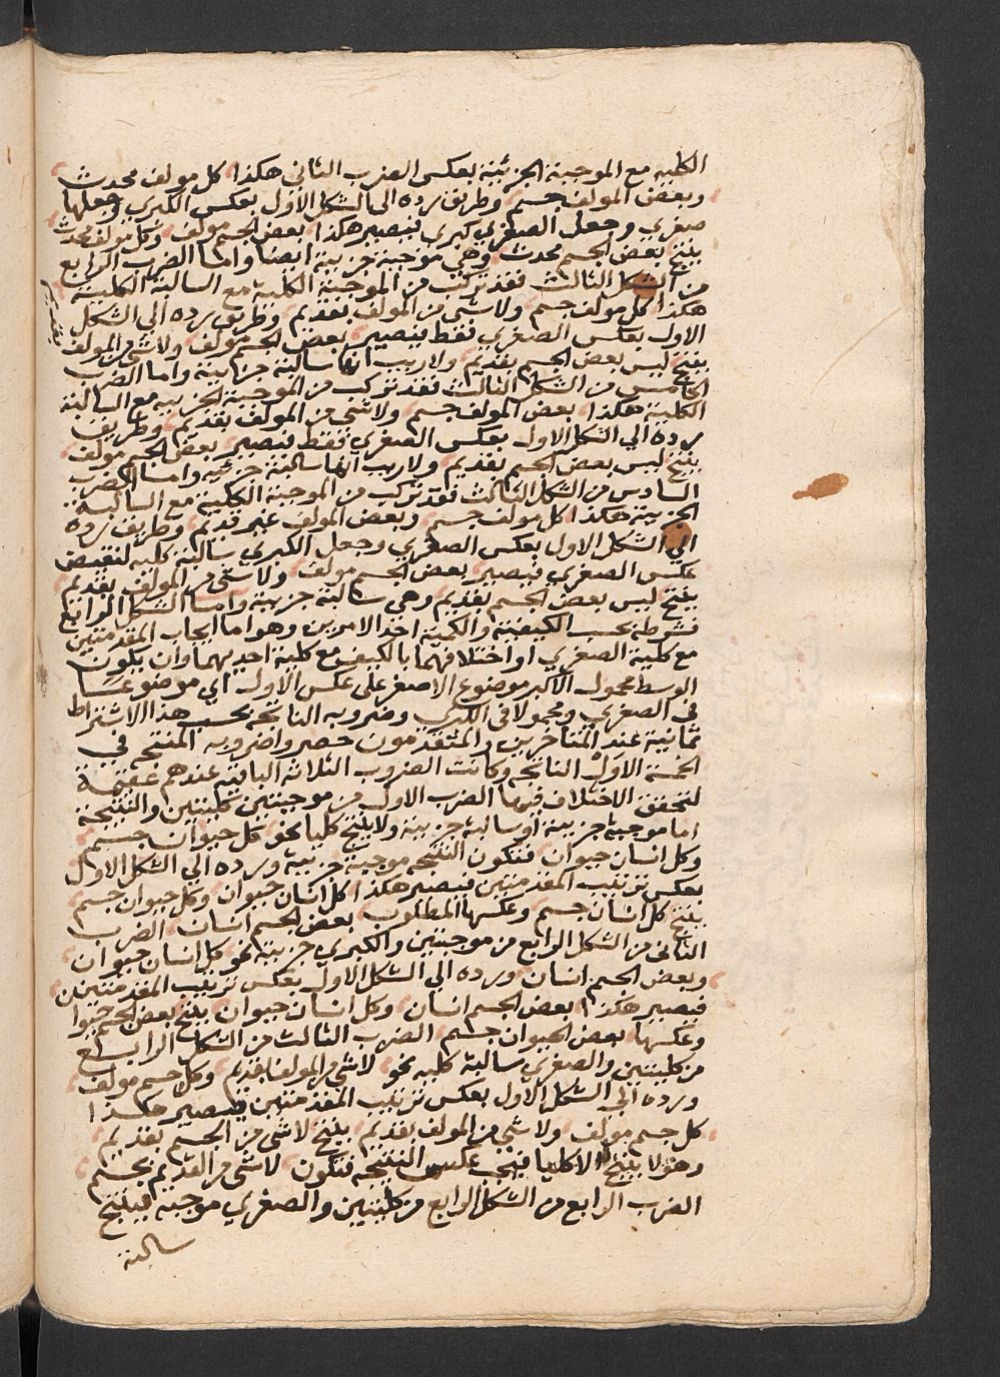 الكلية مع الموجبة الجزئية بعكس الضرب الثاني هكذا كل مولف محدث
وبعض المولف جسم وطريق رده الى الشكل الاول بعكس الكبري وجعلها
صغري وجعل الصغري كبري فيصير هكذا بعض الجسم مولف وكل مولف محدث
ينتج بعض الجسم محدث وهي موجبة جزيية ايضا واما الضرب الرابع
من الشكل الثالث فقد تركب من الموجبة الكلية مع السالبة الكلية
هكذا كل مولف جسم ولا شي من المولف بقديم وطريق رده الي الشكل
الاول بعكس الصغري فقط فيصير بعض الجسم مولف ولا شي من المولف
بقديم
ينتج ليس بعض الجسم بقديم ولا ريب انها سالبة جزيية واما الضرب
الخامس من الشكل الثالث فقد تركب من الموجبة الجزييه مع السالبة
الكلية هكذا بعض المولف جسم ولا شي من المولف بقديم وطريق
رده الي الشكل الاول بعكس الصغري فقط فيصير بعض الجسم مولف
ينتج ليس بعض الجسم بقديم ولا ريب انها سالبة جزئيه واما الضرب
السادس من الشكل الثالث فقد تركب من الموجبة الكلية مع السالبة
الجزيية هكذا كل مولف جسم وبعض المولف غير قديم وطريق رده
الي الشكل الاول بعكس الصغري وجعل الكبري سالبة كليه لنقيض
عكس الصغري فيصير بعض الجسم مولف ولا شي من المولف بقديم
ينتج ليس بعض الجسم بقديم وهي سالبة جزيية واما الشكل الرابع
فشرطه بحسب الكيفية والكمية احد الامرين وهو اما ايجاب المقدمتين
مع كلية الصغري او اختلافهما بالكيف مع كلية احديهما وان يكون
الوسط محمول الاكبر موضوع الاصغر على عكس الاول اي موضوعا
في الصغري ومحمولا في الكبري وضروبه الناتجه بحسب هذا الاشتراط
ثمانية عند المتاخرين والمتقدمون حصروا ضروبه المنتجه في
الخمسة الاول الناتجه وكانت الضروب الثلاثة الباقيه عندهم عقيمة
لتحقق الاختلاف فيها الضرب الاول من موجبتين كليتين والنتيجة
اما موجبة جزيية او سالبة جزيية ولا ينتج كليا نحو كل حيوان جسم
وكل انسان حيوان فتكون النتيجه موجبة جزيية ورده الي الشكل الاول
بعكس ترتيب المقدمتين فيصير هكذا كل انسان حيوان وكل حيوان جسم
ينتج كل انسان جسم وعكسها المطلوب بعض الجسم انسان الضرب
الثاني من الشكل الرابع من موجبتين والكبري جزيية نحو كل انسان حيوان
وبعض الجسم انسان ورده الي الشكل الاول بعكس ترتيب المقدمتين
فيصير هكذا بعض الجسم انسان وكل انسان حيوان ينتج بعض الجسم حيوا
وعكسها بعض الحيوان جسم الضرب الثالث من الشكل الرابع
من كليتين والصغري سالبة كليه نحو لا شي من المولف بقديم وكل جسم مولف
ورده الي الشكل الاول بعكس ترتيب المقدمتين فيصير هكذا
كل جسم مولف ولا شي من المولف بقديم ينتج لا شي من الجسم بقديم
وهو لا ينتج الا كليا فيجب عكس النتيجه فتكون لا شي من القديم بجسم
الضرب الرابع من الشكل الرابع من كليتين والصغري موجبة فينتج
سالبة